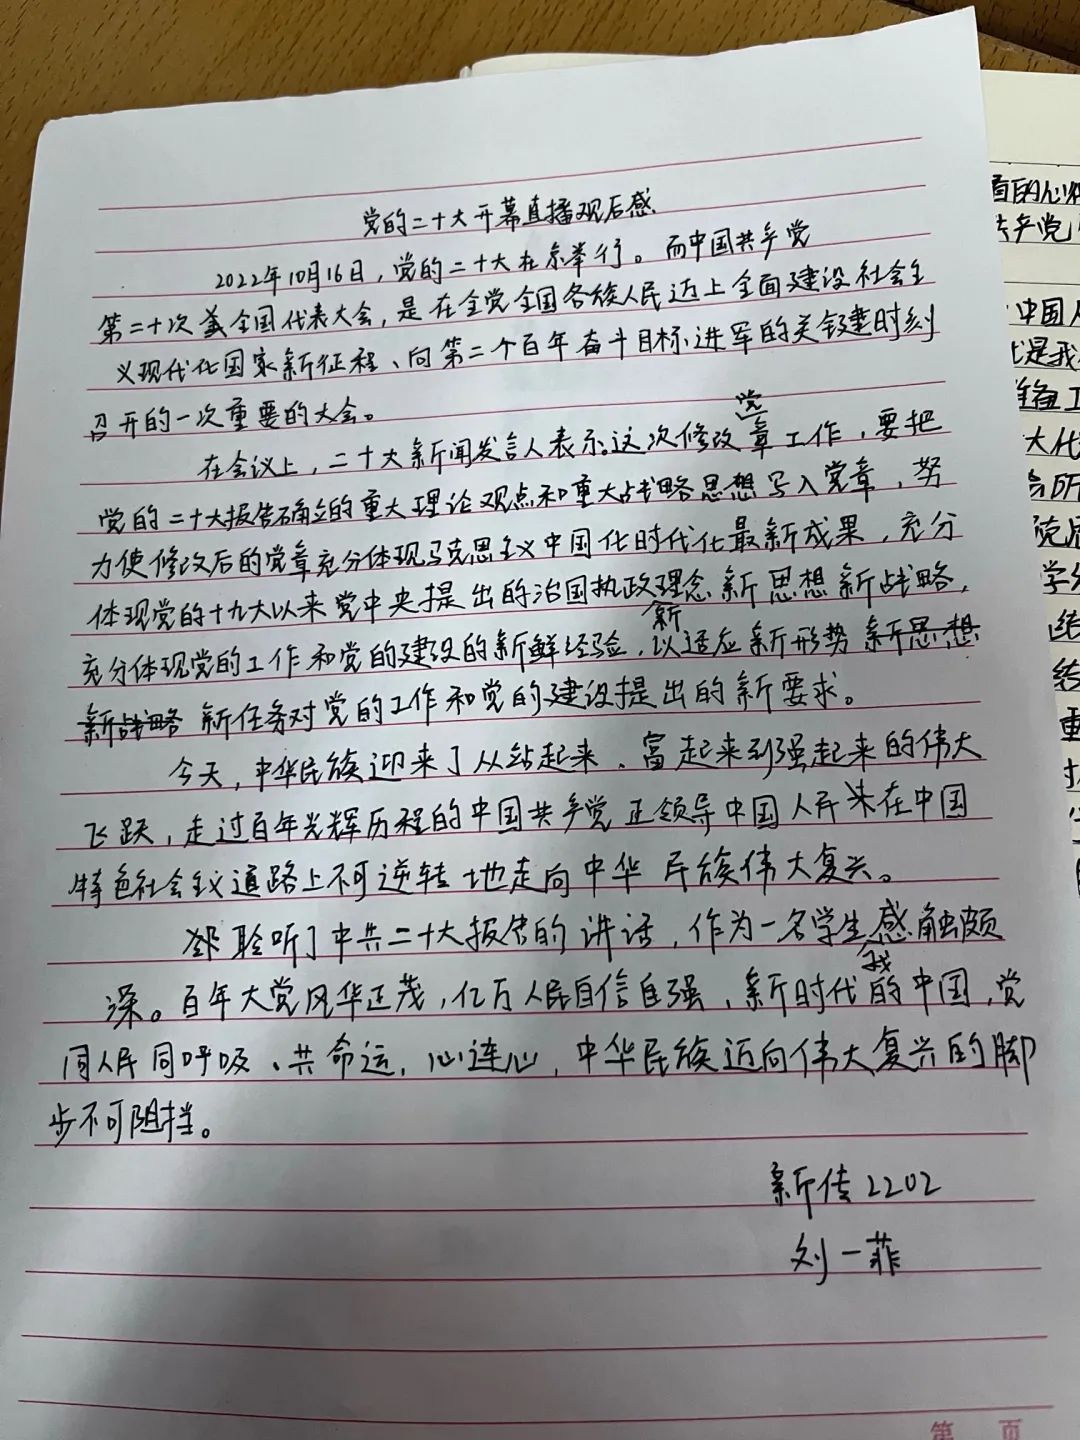 党的二十大开幕直播观后感
2022年10月16日，党的二十大在京举行。而中国共产党
第二十次全国代表大会，是在全党全国各族人民迈上全面建设社会主
义现代化国家新征程、向第二个百年奋斗目标进军的关键时刻
召开的一次重要的大会。
在会议上，二十大新闻发言人表示：这次修改党章工作，要把
党的二十大报告确立的重大理论观点和重大战略思想写入党章，努
力使修改后的党章充分体现马克思主义中国化时代化最新成果，充分
体现党的十九大以来党中央提出的治国执政理念新思想新战略，
充分体现党的工作和党的建设的新鲜经验，以适应新形势新思想
新战略新任务对党的工作和党的建设提出的新要求。
今天，中华民族迎来了从站起来、富起来到强起来的伟大
飞跃，走过百年光辉历程的中国共产党正领导中国人民来在中国
特色社会主义道路上不可逆转地走向中华民族伟大复兴。
聆听了中共二十大报告的讲话，作为一名学生我感触颇
深。百年大党风华正茂，亿万人民自信自强，新时代的中国，党
同人民同呼吸、共命运，心连心，中华民族迈向伟大复兴的脚
步不可阻挡。
新传2202
刘一菲
第 页
共产党
中国人
是我
准备工
大代
所
学
重